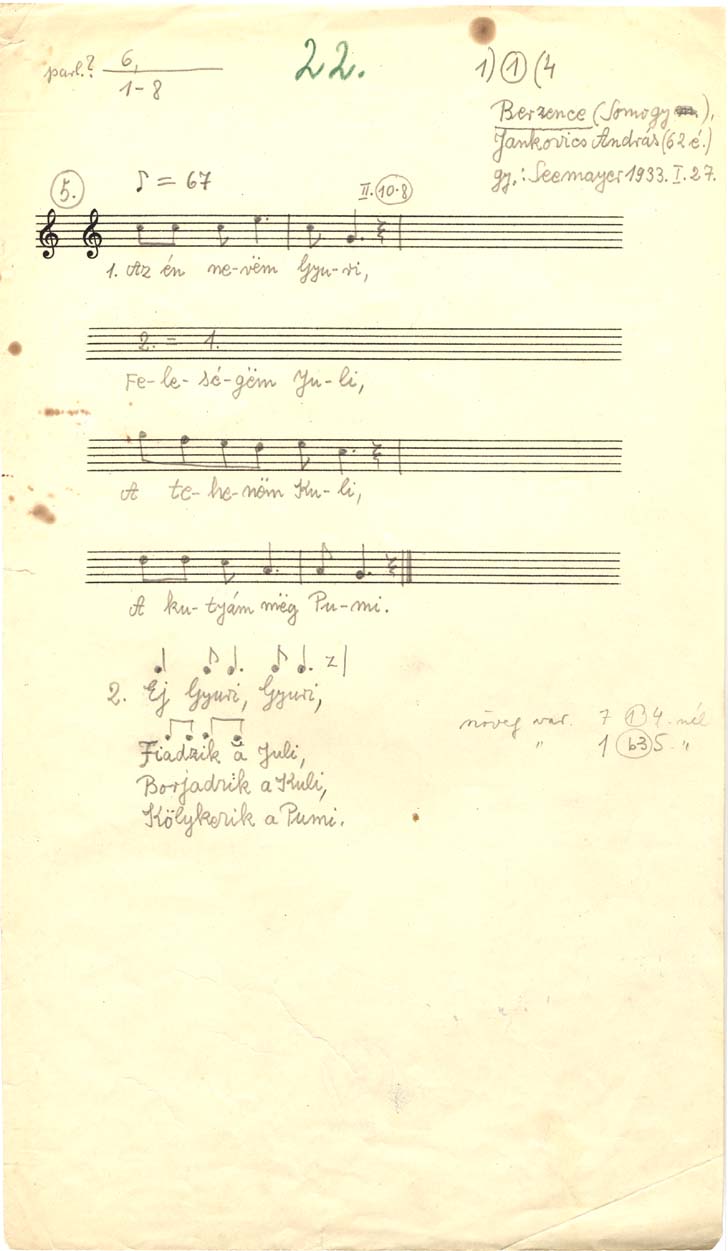 parl.? 6, 22. 1) 1 (4
1-8
Berzence (Somogy),
Jankovics András (62 é.)
gy.: Seemayer 1933. I. 27.
5. ♪ = 67 II. 10.8
1. Az én ne-vëm Gyu-ri,
2. = 1.
Fe-le-sé-gëm Ju-li,
A te-he-nëm Ku-li,
A ku-tyám mëg Pu-mi.
2. Ej Gyuri, Gyuri,
Fiadzik a Juli,
Borjadzik a Kuli,
Kölykezik a Pumi.
var. 7 1) 4. nél
" 1 b3 5. "